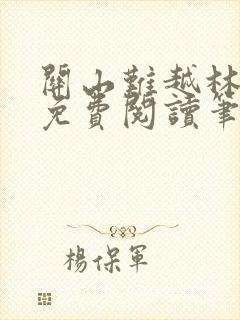 關山難越林
免費閱讀筆
楊保軍